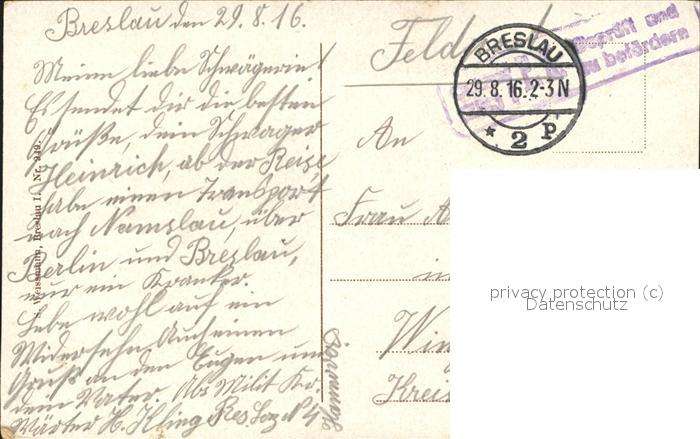 Breslau den 29.8.16.
Meine liebe Schwägerin!
Es sendet dir die besten
Grüße, dein Schwager
Heinrich, ab der Reise,
habe einen Transport
nach Namslau, über
Berlin und Breslau,
nur ein Kranker.
Lebe wohl auf ein
Widersehn. Auch einen
Gruß an den Eugen und
dem Vater. Abs Milit Kr.
Wärter H. Kling Res. Laz N 4
Feld
BRESLAU
29.8.16.2-3N
* 2 p
geprüft und
zu befördern
An
Frau A
in
Win
Kreis
Breslau I. Nr. 249.
privacy protection (c)
Datenschutz